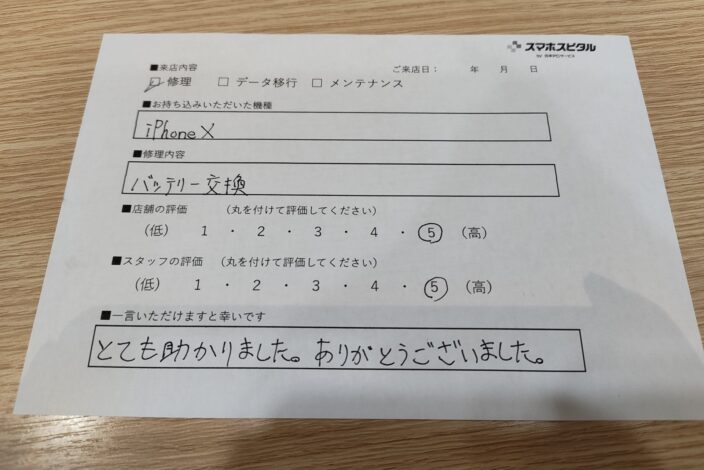 スマホスピタル
by 日本PCサービス
■来店内容
ご来店日： 年 月 日
☑ 修理 □ データ移行 □ メンテナンス
■お持ち込みいただいた機種
iPhone X
■修理内容
バッテリー交換
■店舗の評価 （丸を付けて評価してください）
（低） 1 ・ 2 ・ 3 ・ 4 ・ 5 （高）
■スタッフの評価 （丸を付けて評価してください）
（低） 1 ・ 2 ・ 3 ・ 4 ・ 5 （高）
■一言いただけますと幸いです
とても助かりました。ありがとうございました。